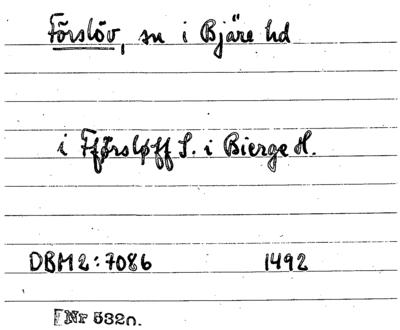 Förslöv, sn i Bjäre hd
i Fförsløff S. i Bierge H.
DBM2:7086 1492
Nr 5320.